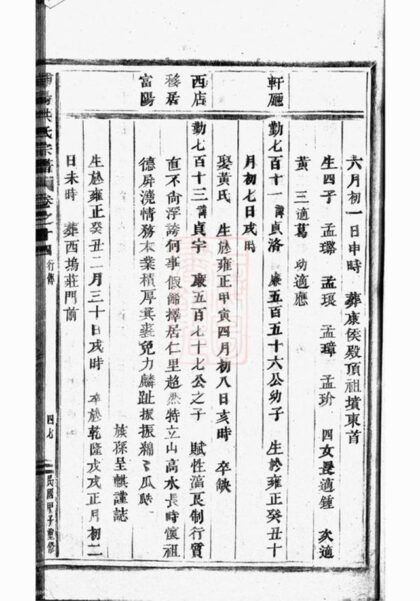 六月初一日申時 葬康侯殿頂祖墳東首
生四子 孟璐 孟瑛 孟璋 孟玠 四女長適鍾 次適
黃 三適葛 幼適應
軒廳
勤七百十一 諱貞洛 康五百五十六公幼子 生於雍正癸丑十
月初七日戌時
娶黃氏 生於雍正甲寅四月初八日亥時 卒缺
西店
勤七百十三 諱貞宇 康五百七十七公之子 賦性溫良制行質
移居
直不尙浮誇何事假餙擇居仁里超然特立山高水長時懷祖
富陽
德屏澆情務本業積厚箕裘克力麟趾振振緜緜瓜瓞
族孫呈麒謹誌
生於雍正癸丑二月三十日戌時 卒於乾隆戊戌正月初二
日未時 葬西塢莊門前
陽洪氏宗譜 卷之十四 行傳 四七 民國甲子重修